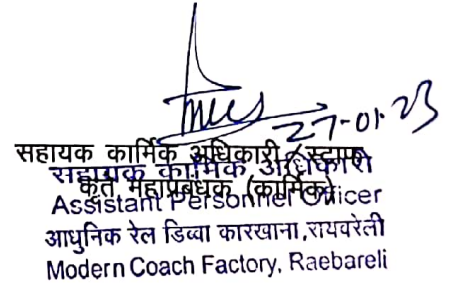 27-01-23
सहायक कार्मिक अधिकारी / स्टाफ
सहायक कार्मिक अधिकारी
कृते महाप्रबंधक (कार्मिक)
Assistant Personnel Officer
आधुनिक रेल डिब्बा कारखाना, रायबरेली
Modern Coach Factory, Raebareli